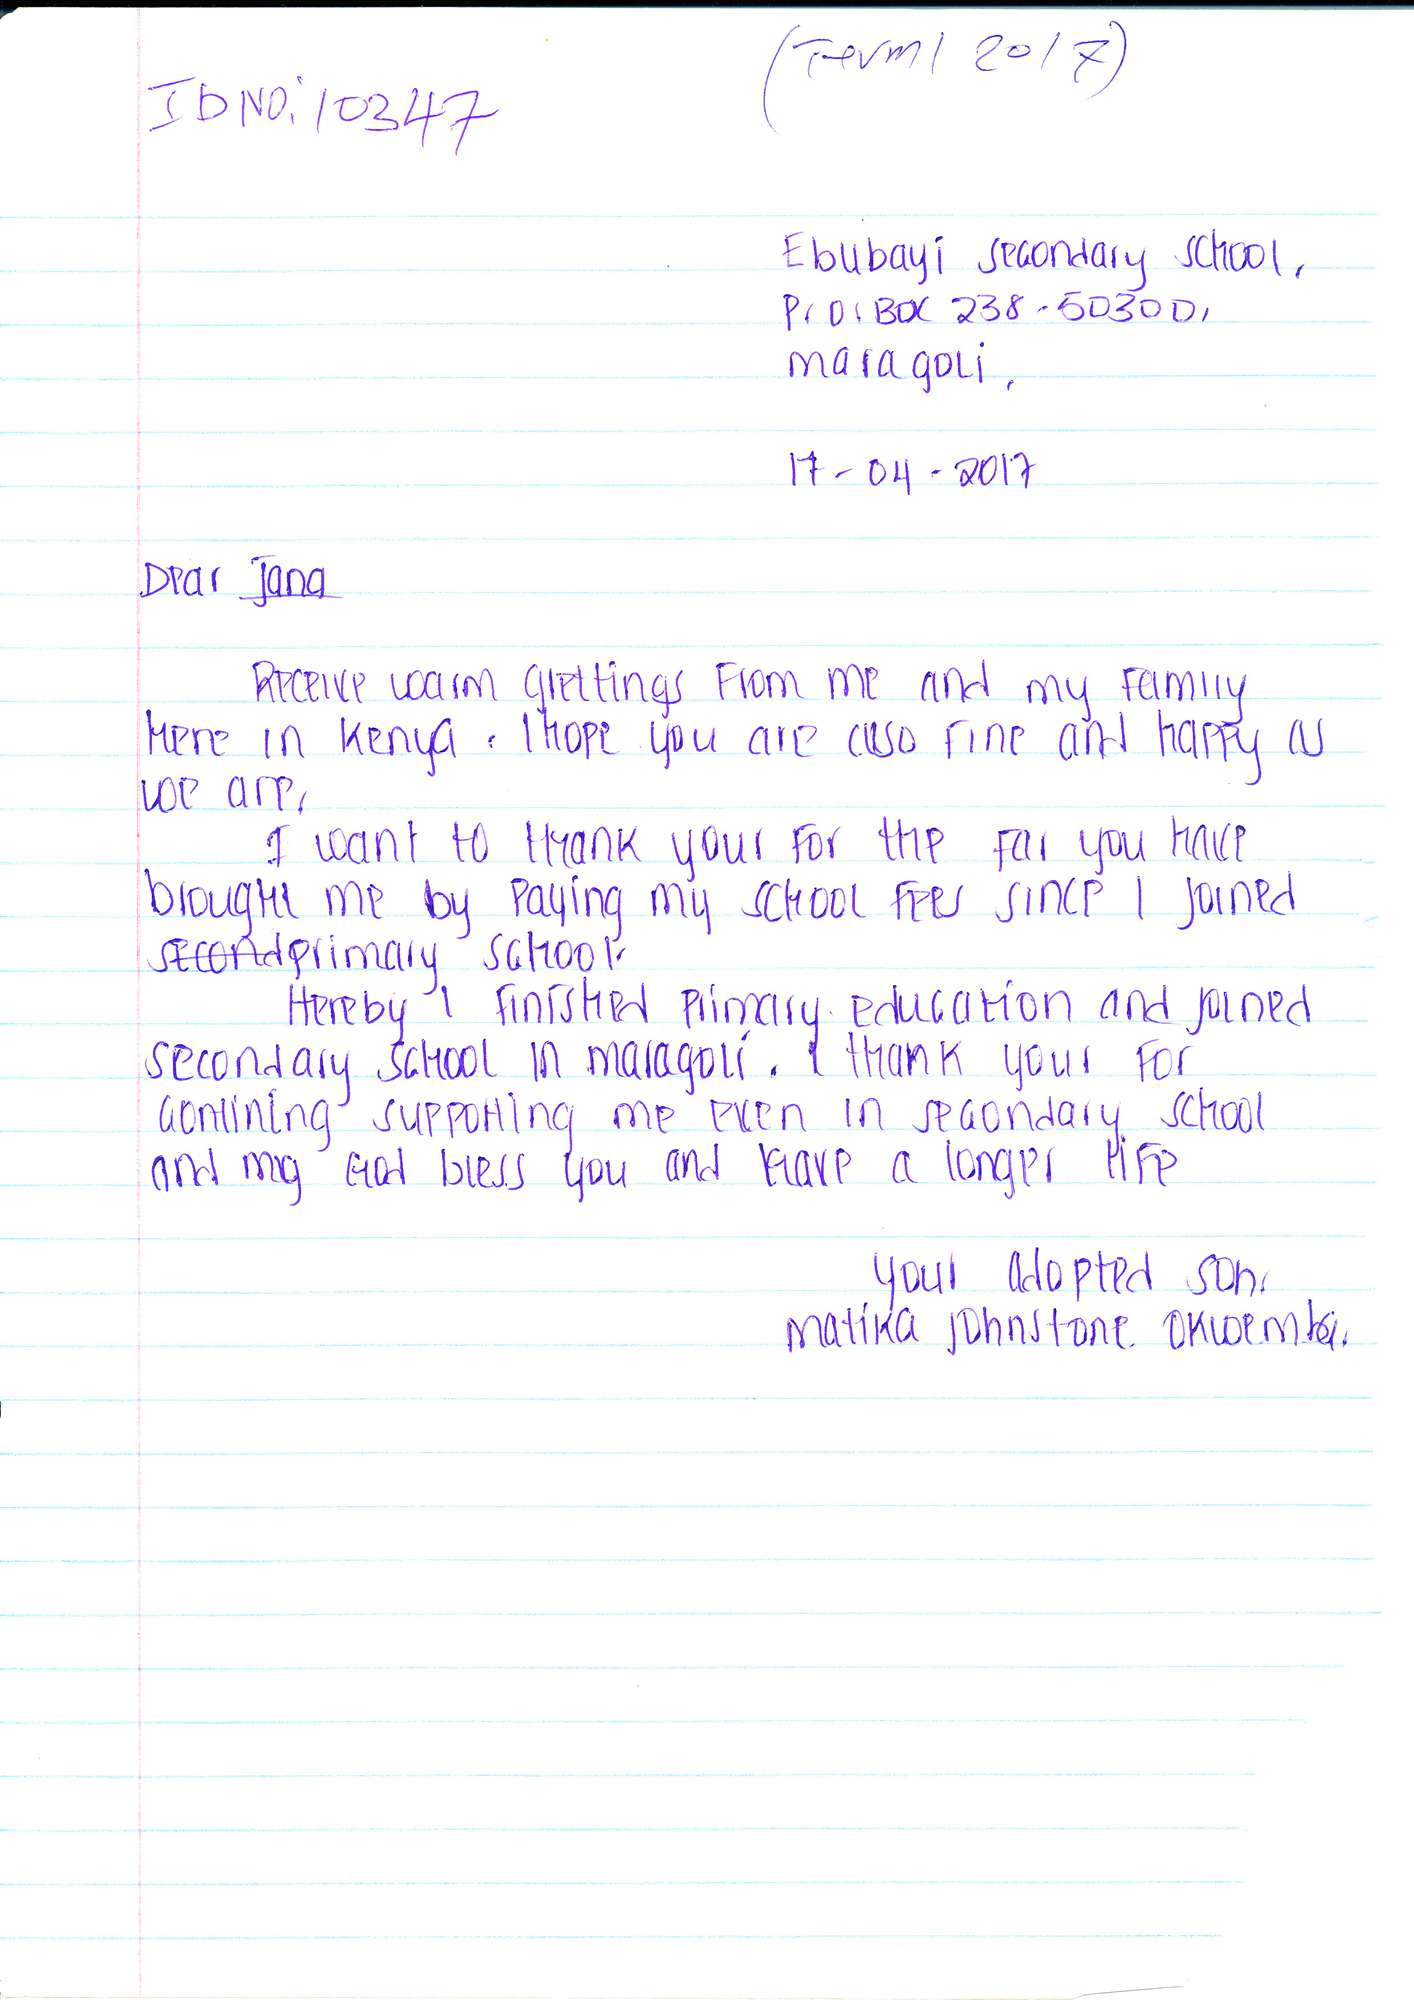 (Term 1 2017)
ID NO: 10347
Ebubayi secondary school,
P.O. BOX 238-50300,
maragoli,
17-04-2017
Dear Jana
Receive warm greetings From me and my Family
Here in Kenya. I hope you are also Fine and happy as
we are.
I want to thank your For the Far you have
brought me by Paying my school Fees since I joined
second primary school.
Hereby I Finished Primary education and joined
secondary school in maragoli. I thank your For
contining supporting me even in secondary school
and my God bless you and Have a longer life
your adopted son.
Matika Johnstone Okwemba.